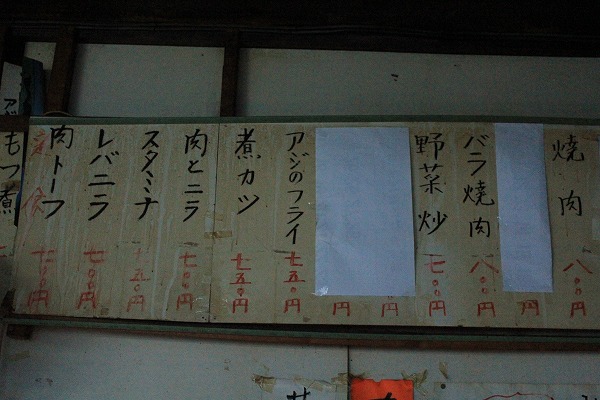 焼肉
八〇〇円
円
バラ焼肉
八〇〇円
野菜炒
七〇〇円
円
円
アジのフライ
七五〇円
煮カツ
七五〇円
肉とニラ
七〇〇円
スタミナ
円
レバニラ
七〇〇円
肉トーフ
定食
七〇〇円
もつ煮